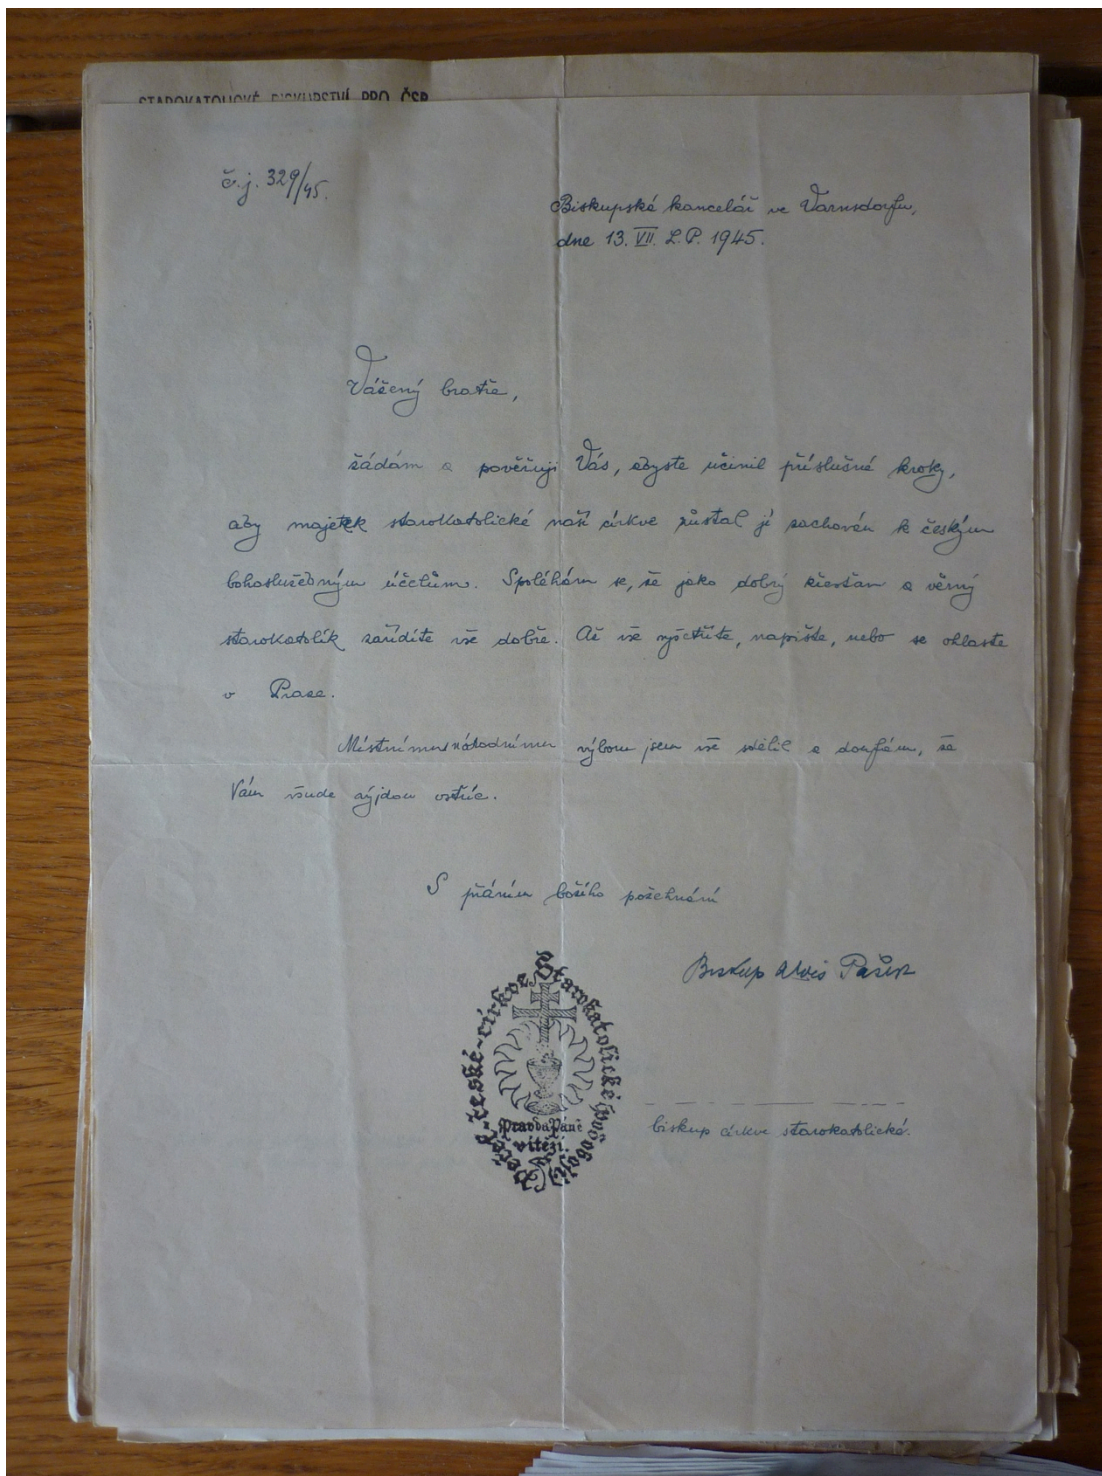 STAROKATOLICKÉ BISKUPSTVÍ PRO ČSR
č. j. 329/45.
Biskupská kancelář ve Varnsdorfu,
dne 13. VII. L. P. 1945.
Vážený bratře,
žádám a pověřuji Vás, abyste učinil příslušné kroky,
aby majetek starokatolické naší církve zůstal jí zachován k českým
bohoslužebným účelům. Spoléhám se, že jako dobrý křesťan a věrný
starokatolík zařídíte vše dobře. Až vše vyšetříte, napište, nebo se ohlaste
v Praze.
Místnímu národnímu výboru jsem vše sdělil a doufám, že
Vám všude vyjdou vstříc.
S přáním božího požehnání
Biskup Alois Pašek
biskup církve starokatolické.
Pravda Páně
vítězí.